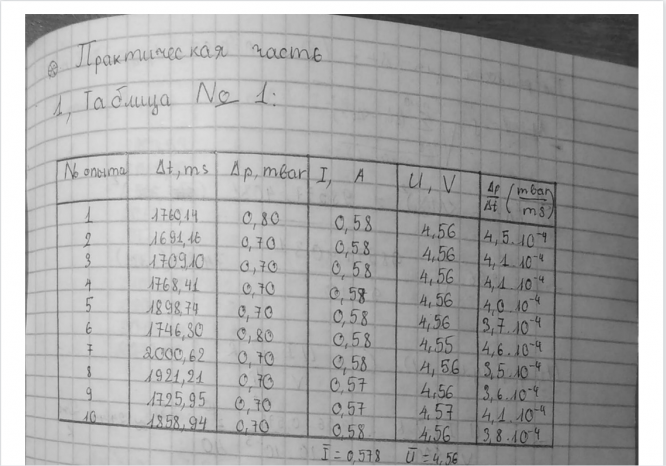 Практическая часть
1, Таблица № 1:
№ опыта Δt, ms Δp, mbar I, A U, V Δp/Δt (mbar/ms)
1 1760,14 0,80 0,58 4,56 4,5·10⁻⁴
2 1691,16 0,70 0,58 4,56 4,1·10⁻⁴
3 1709,10 0,70 0,58 4,56 4,1·10⁻⁴
4 1768,41 0,70 0,58 4,56 4,0·10⁻⁴
5 1898,74 0,70 0,58 4,56 3,7·10⁻⁴
6 1746,30 0,80 0,58 4,55 4,6·10⁻⁴
7 2000,62 0,70 0,58 4,56 3,5·10⁻⁴
8 1921,21 0,70 0,57 4,56 3,6·10⁻⁴
9 1725,95 0,70 0,57 4,57 4,1·10⁻⁴
10 1858,94 0,70 0,58 4,56 3,8·10⁻⁴
Ī = 0,578 Ū = 4,56